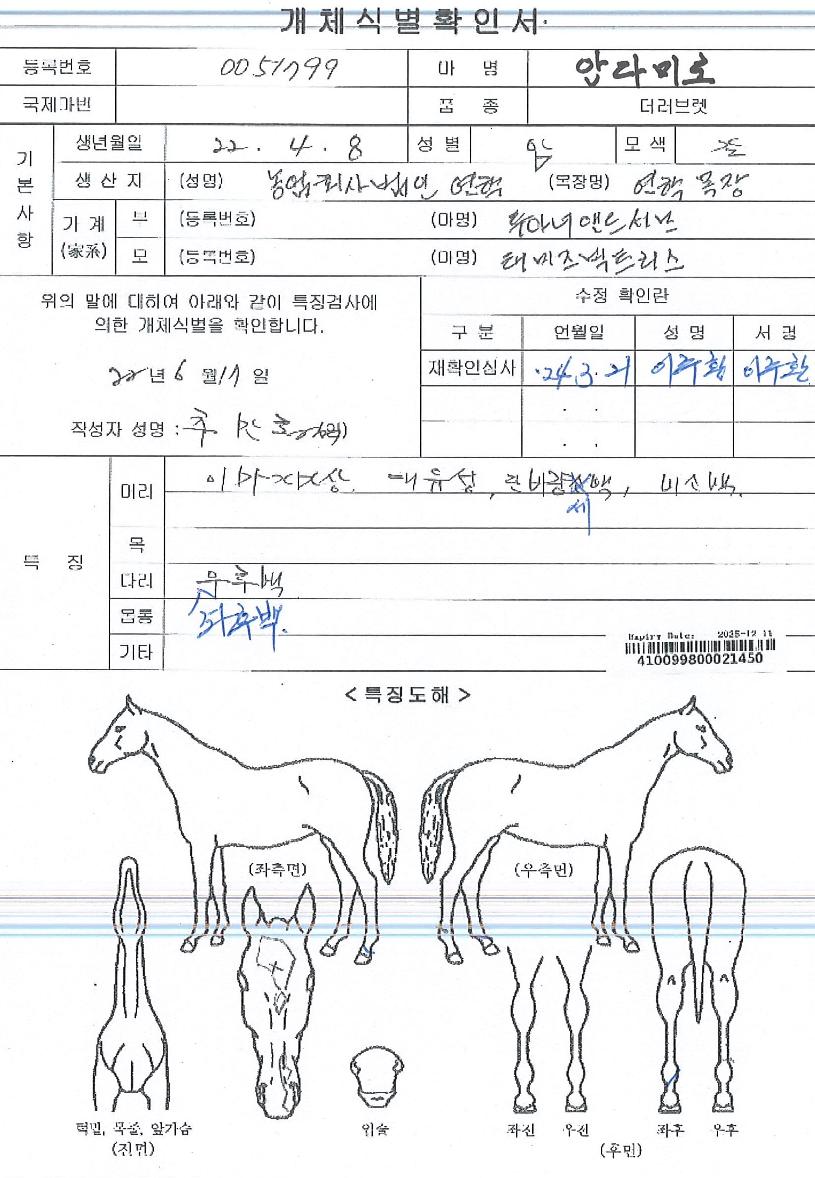 개체식별확인서
등록번호 0051799 마 명 압다미로
국제마번 품 종 더러브렛
기본사항
생년월일 22. 4. 8 성별 암 모색
생산지 (성명) 농업회사법인 연학 (목장명) 연학목장
가계 (家系) 부 (등록번호) (마명)
모 (등록번호) (마명)
위의 말에 대하여 아래와 같이 특징검사에
의한 개체식별을 확인합니다.
22년 6월 17일
작성자 성명 :
수정 확인란
구분 년월일 성명 서명
재확인심사 '24.3.21 이주환 이주환
특징
머리 이마 대유성, 백, 비소백.
세
목
다리 우후백
몸통 좌후백.
기타
Expiry Date: 2025-12-11
410099800021450
<특징도해>
(좌측면) (우측면)
턱밑, 목줄, 앞가슴
(전면)
위술
좌전 우전 좌후 우후
(후면)